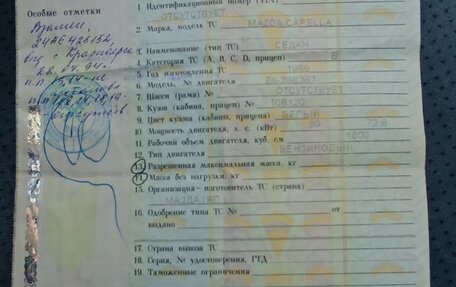 Особые отметки
Взамен
24АЕ426152,
г. Красноярск
22.04.94г.
1. Идентификационный номер (VIN)
ОТСУТСТВУЕТ
2. Марка, модель ТС MAZDA CAPELLA
3. Наименование (тип ТС) СЕДАН
4. Категория ТС (А, В, С, D, прицеп) B
5. Год изготовления ТС
6. Модель, № двигателя
7. Шасси (рама) № ОТСУТСТВУЕТ
8. Кузов (кабина, прицеп) №
9. Цвет кузова (кабины, прицепа) БЕЛЫЙ
10. Мощность двигателя, л. с. (кВт) 99 72.8
11. Рабочий объем двигателя, куб. см 1800
12. Тип двигателя БЕНЗИНОВЫЙ
13. Разрешенная максимальная масса, кг
14. Масса без нагрузки, кг
15. Организация—изготовитель ТС (страна)
МАЗДА
16. Одобрение типа ТС № от
выдано
17. Страна вывоза ТС
18. Серия, № удостоверения, ГТД
19. Таможенные ограничения